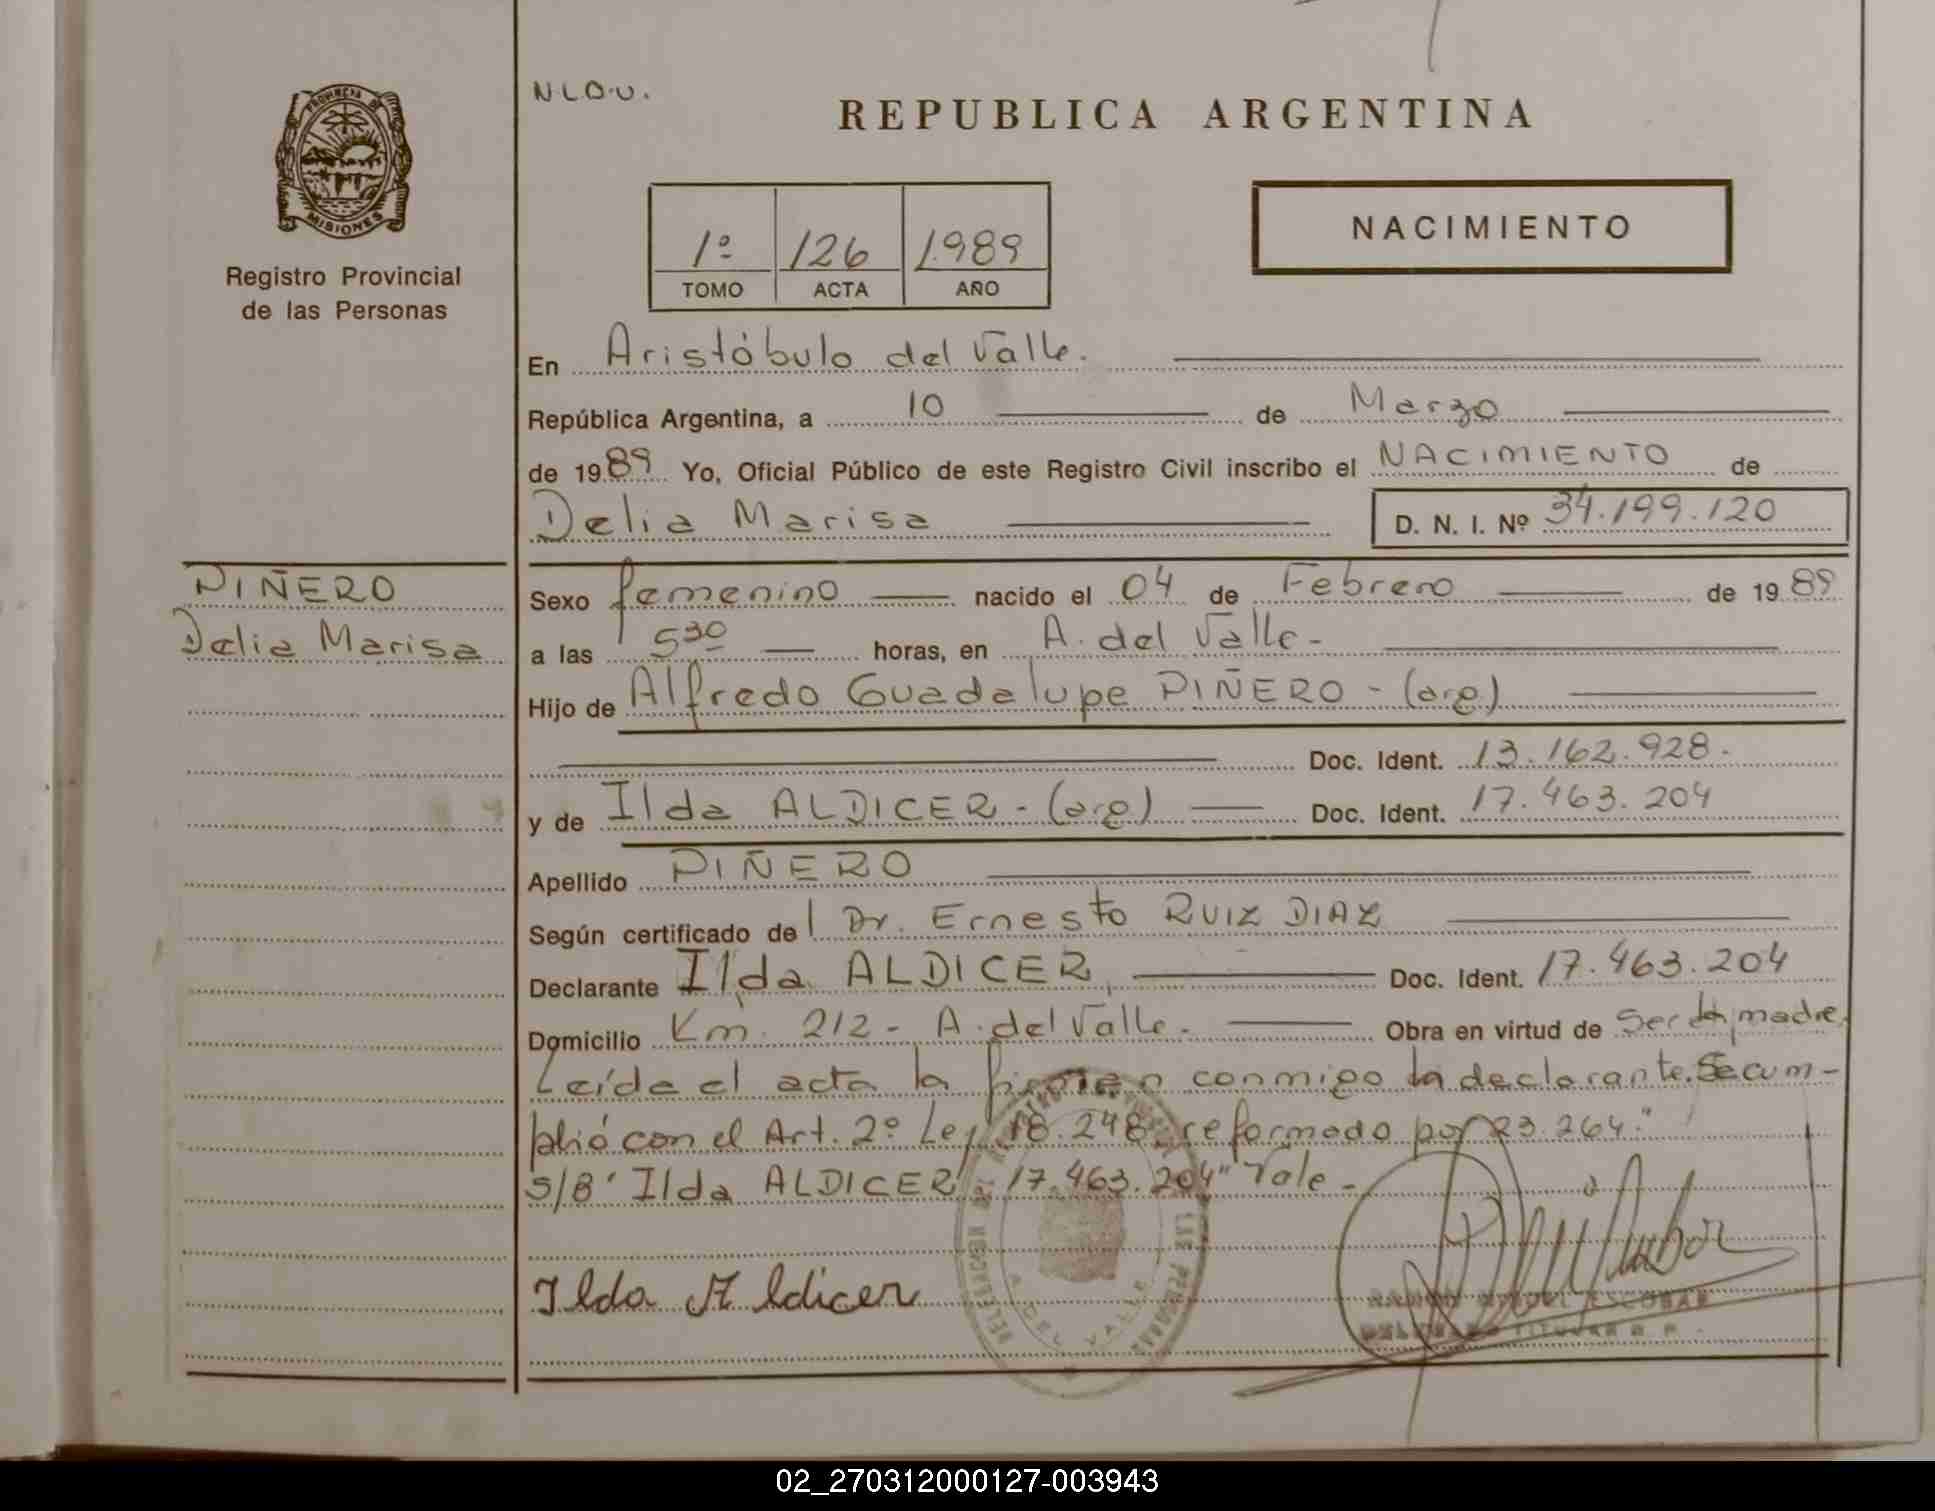 N.L.O.U.
REPUBLICA ARGENTINA
PROVINCIA DE
MISIONES
Registro Provincial
de las Personas
1º 126 1.989
TOMO ACTA AÑO
NACIMIENTO
En Aristóbulo del Valle.
República Argentina, a 10 de Marzo
de 1989 Yo, Oficial Público de este Registro Civil inscribo el NACIMIENTO de
Delia Marisa D. N. I. Nº 34.199.120
PIÑERO
Delia Marisa
Sexo femenino nacido el 04 de Febrero de 1989
a las 5 30 horas, en A. del Valle-
Hijo de Alfredo Guadalupe PIÑERO - (arg)
Doc. Ident. 13.162.928.
y de Ilda ALDICER - (arg) Doc. Ident. 17.463.204
Apellido PIÑERO
Según certificado del Dr. Ernesto RUIZ DIAZ
Declarante Ilda ALDICER, Doc. Ident. 17.463.204
Domicilio Km. 212 - A. del Valle. Obra en virtud de ser la madre.
Leída el acta la firman conmigo la declarante. Se cum-
plió con el Art. 2º Ley 18.248 reformado por 23.264."
S/B "Ilda ALDICER 17.463.204" Vale -
Ilda Aldicer
A. DEL VALLE
RAMON MIGUEL ESCOBAR
DELEGADO TITULAR R. P.
02_270312000127-003943